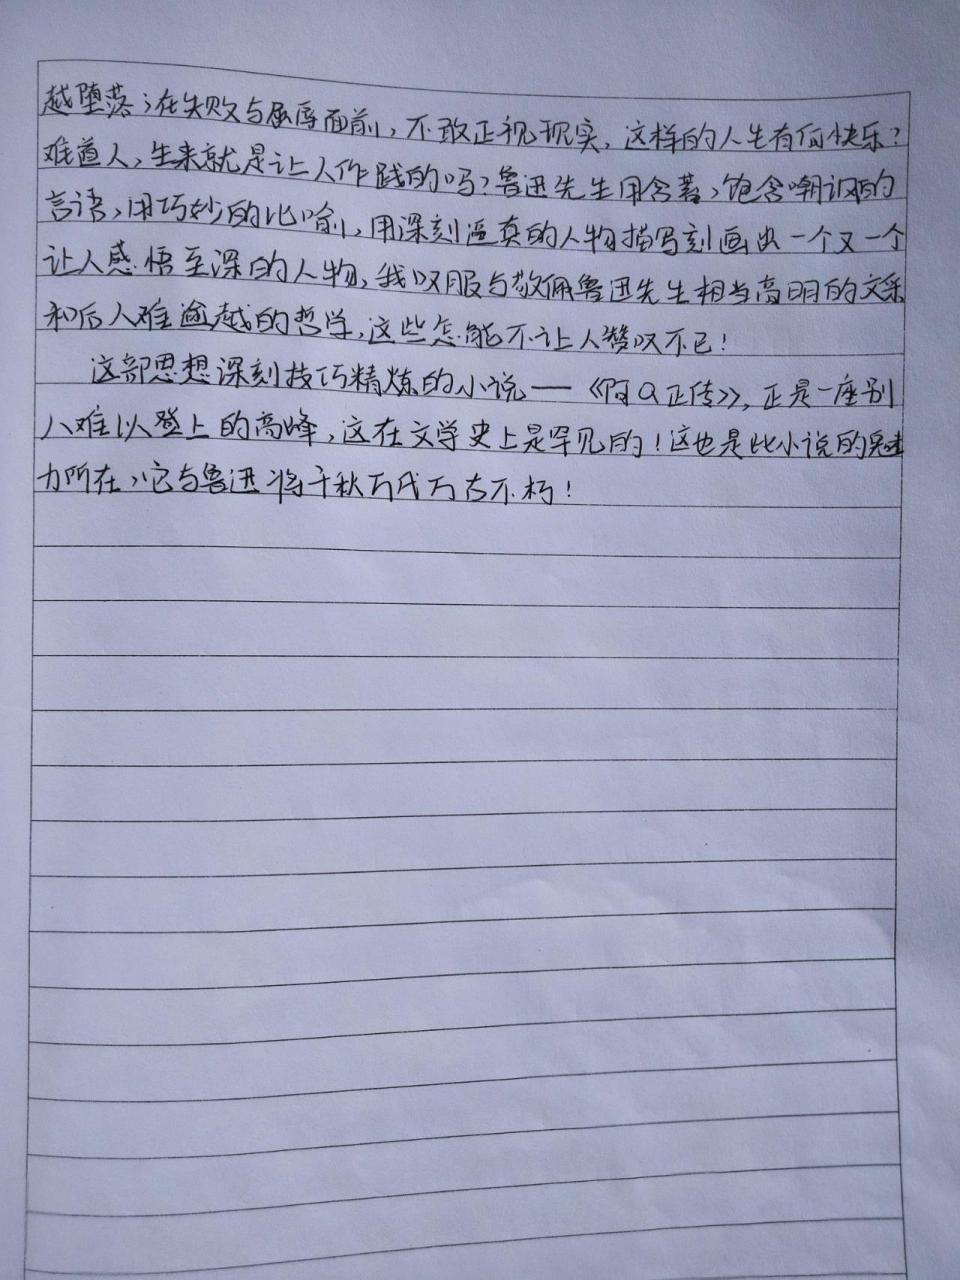 越堕落；在失败与屈辱面前，不敢正视现实，这样的人生有何快乐？
难道人，生来就是让人作践的吗？鲁迅先生用含蓄，饱含嘲讽的
言语，用巧妙的比喻，用深刻逼真的人物描写刻画出一个又一个
让人感悟至深的人物，我叹服与敬佩鲁迅先生相当高明的文采
和后人难逾越的哲学，这些怎能不让人赞叹不已！
这部思想深刻技巧精炼的小说—《阿Q正传》，正是一座别
人难以登上的高峰，这在文学史上是罕见的！这也是此小说的魅
力所在，它与鲁迅将千秋万代万古不朽！